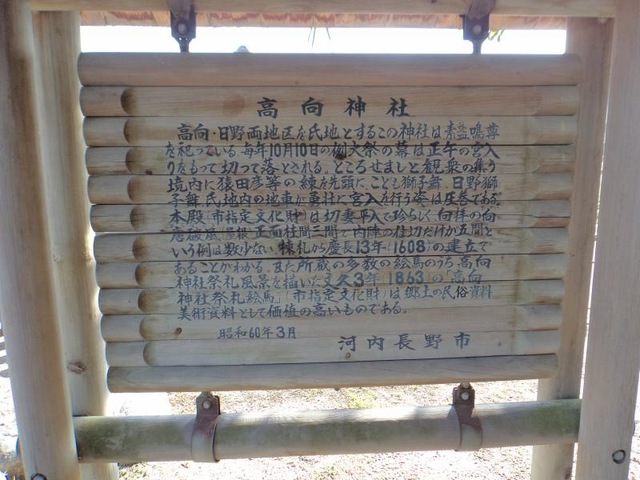 高向神社
高向・日野両地区を氏地とするこの神社は素盞嗚尊
を祀っている 毎年10月10日の例大祭の幕は正午の宮入
りをもって切って落とされる。ところせましと観衆の集う
境内に猿田彦等の練を先頭に、こども獅子舞、日野獅
子舞、氏地内の地車が宮入を行う姿は圧巻である。
本殿(市指定文化財)は切妻平入で珍らしく 向拝の向
唐破風 正面柱間三間で内陣の仕切だけが五間と
いう例は数少ない 棟札から慶長13年(1608)の建立で
あることがわかる。また所蔵の多数の絵馬のうち、高向
神社祭礼風景を描いた文久3年 1863の「高向
神社祭礼絵馬」(市指定文化財)は郷土の民俗資料
美術資料として価値の高いものである。
昭和60年3月
河内長野市